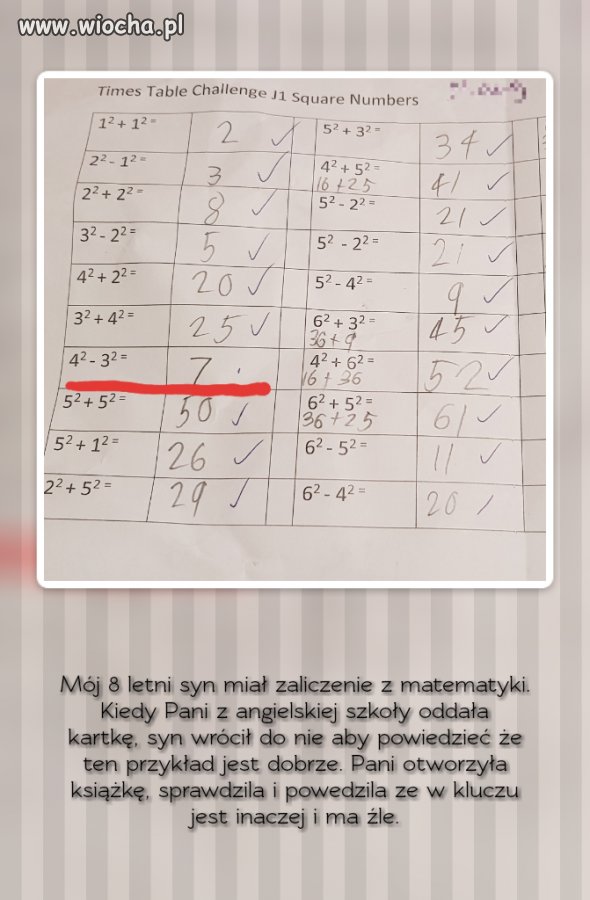 www.wiocha.pl
Times Table Challenge J1 Square Numbers
1² + 1² = 2 ✓ 5² + 3² = 34 ✓
2² - 1² = 3 ✓ 4² + 5² = 41 ✓
16 + 25
2² + 2² = 8 ✓ 5² - 2² = 21 ✓
3² - 2² = 5 ✓ 5² - 2² = 21 ✓
4² + 2² = 20 ✓ 5² - 4² = 9 ✓
3² + 4² = 25 ✓ 6² + 3² = 45 ✓
36 + 9
4² - 3² = 7 4² + 6² = 52 ✓
16 + 36
5² + 5² = 50 ✓ 6² + 5² = 61 ✓
36 + 25
5² + 1² = 26 ✓ 6² - 5² = 11 ✓
2² + 5² = 29 ✓ 6² - 4² = 20 ✓
Mój 8 letni syn miał zaliczenie z matematyki.
Kiedy Pani z angielskiej szkoły oddała
kartkę, syn wrócił do nie aby powiedzieć że
ten przykład jest dobrze. Pani otworzyła
książkę, sprawdzila i powedzila ze w kluczu
jest inaczej i ma źle.